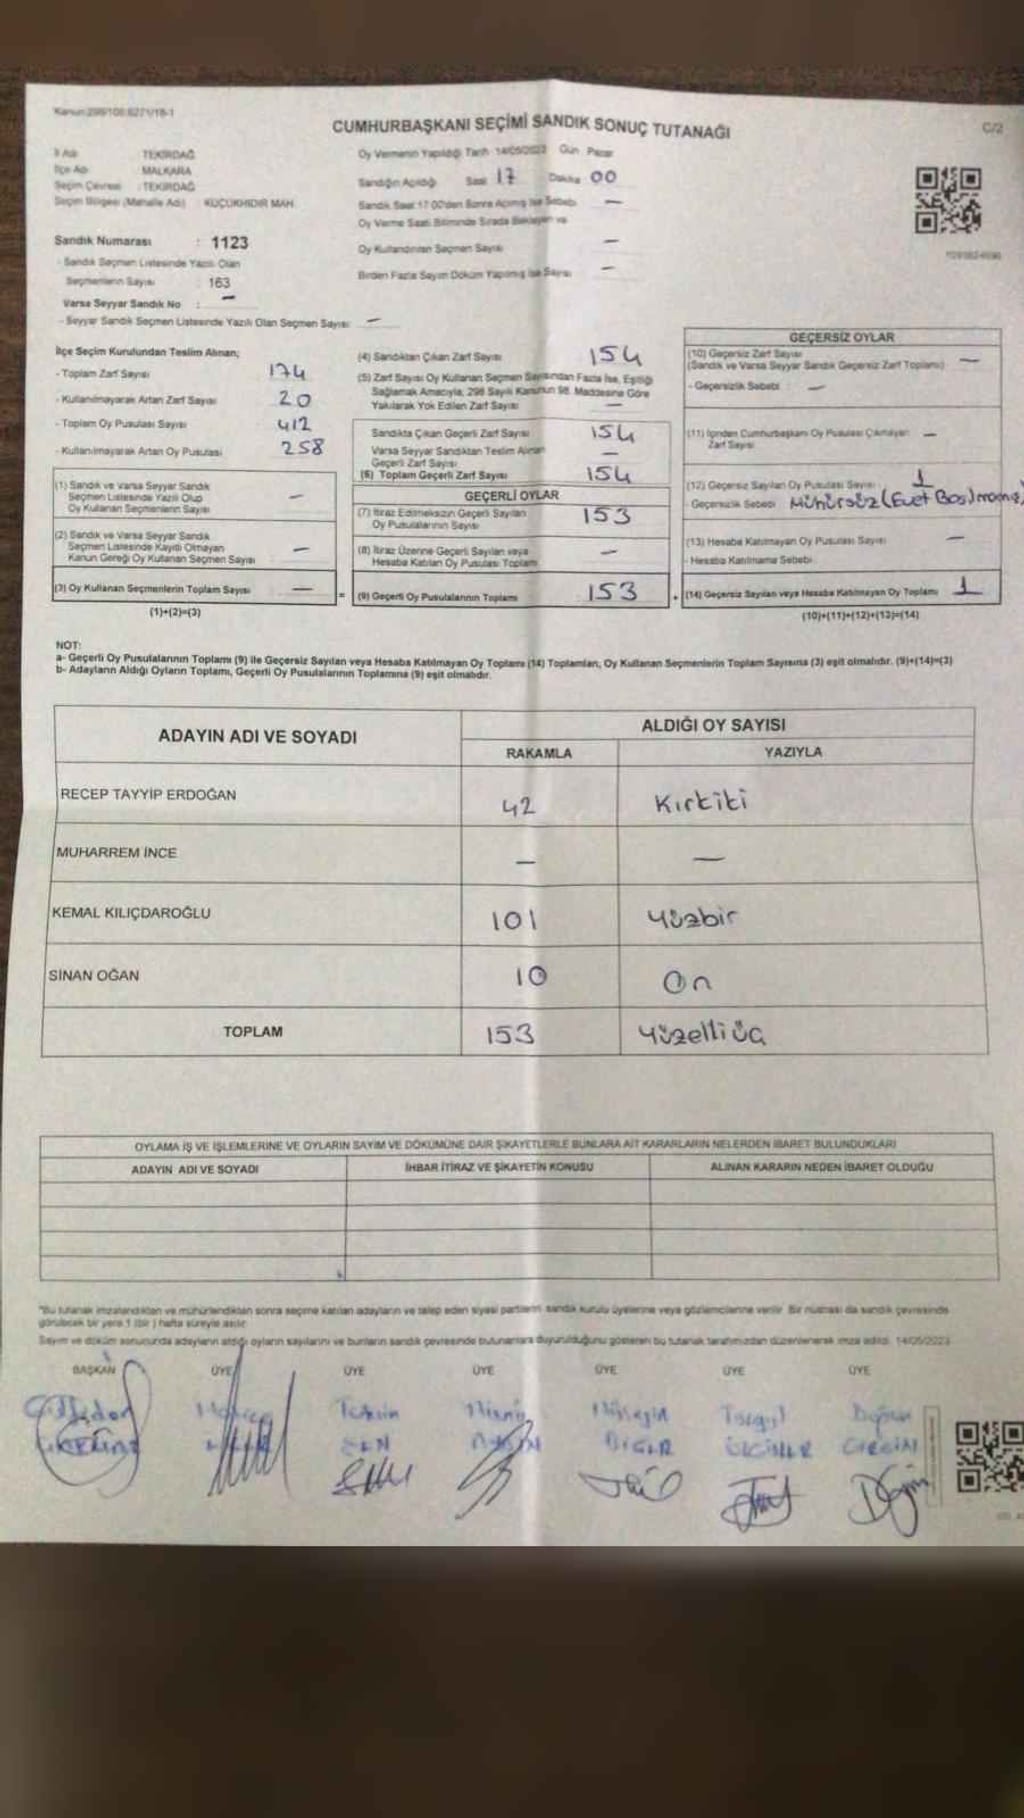 Kanun:298/108;6271/18-1
CUMHURBAŞKANI SEÇİMİ SANDIK SONUÇ TUTANAĞI
C/2
İl Adı TEKİRDAĞ
İlçe Adı MALKARA
Seçim Çevresi : TEKİRDAĞ
Seçim Bölgesi (Mahalle Adı) KÜÇÜKHIDIR MAH.
Sandık Numarası : 1123
- Sandık Seçmen Listesinde Yazılı Olan
Seçmenlerin Sayısı 163
Varsa Seyyar Sandık No : -
- Seyyar Sandık Seçmen Listesinde Yazılı Olan Seçmen Sayısı: -
Oy Vermenin Yapıldığı Tarih 14/05/2023 Gün Pazar
Sandığın Açıldığı Saat 17 Dakika 00
Sandık Saat 17:00'den Sonra Açılmış İse Sebebi -
Oy Verme Saati Bitiminde Sırada Bekleyen ve
Oy Kullandırılan Seçmen Sayısı -
Birden Fazla Sayım Döküm Yapılmış İse Sayısı -
İlçe Seçim Kurulundan Teslim Alınan;
- Toplam Zarf Sayısı 174
- Kullanılmayarak Artan Zarf Sayısı 20
- Toplam Oy Pusulası Sayısı 412
- Kullanılmayarak Artan Oy Pusulası 258
(1) Sandık ve Varsa Seyyar Sandık
Seçmen Listesinde Yazılı Olup
Oy Kullanan Seçmenlerin Sayısı -
(2) Sandık ve Varsa Seyyar Sandık
Seçmen Listesinde Kayıtlı Olmayan
Kanun Gereği Oy Kullanan Seçmen Sayısı -
(3) Oy Kullanan Seçmenlerin Toplam Sayısı - =
(1)+(2)=(3)
(4) Sandıktan Çıkan Zarf Sayısı 154
(5) Zarf Sayısı Oy Kullanan Seçmen Sayısından Fazla İse, Eşitliği
Sağlamak Amacıyla, 298 Sayılı Kanunun 98. Maddesine Göre
Yakılarak Yok Edilen Zarf Sayısı -
Sandıkta Çıkan Geçerli Zarf Sayısı 154
Varsa Seyyar Sandıktan Teslim Alınan
Geçerli Zarf Sayısı -
(6) Toplam Geçerli Zarf Sayısı 154
GEÇERLİ OYLAR
(7) İtiraz Edilmeksizin Geçerli Sayılan
Oy Pusulalarının Sayısı 153
(8) İtiraz Üzerine Geçerli Sayılan veya
Hesaba Katılan Oy Pusulası Toplamı -
(9) Geçerli Oy Pusulalarının Toplamı 153 +
GEÇERSİZ OYLAR
(10) Geçersiz Zarf Sayısı
(Sandık ve Varsa Seyyar Sandık Geçersiz Zarf Toplamı) -
- Geçersizlik Sebebi : -
(11) İçinden Cumhurbaşkanı Oy Pusulası Çıkmayan
Zarf Sayısı -
(12) Geçersiz Sayılan Oy Pusulası Sayısı : 1
- Geçersizlik Sebebi Mühürsüz (Evet Basılmamış)
(13) Hesaba Katılmayan Oy Pusulası Sayısı -
- Hesaba Katılmama Sebebi
(14) Geçersiz Sayılan veya Hesaba Katılmayan Oy Toplamı 1
(10)+(11)+(12)+(13)=(14)
NOT:
a- Geçerli Oy Pusulalarının Toplamı (9) ile Geçersiz Sayılan veya Hesaba Katılmayan Oy Toplamı (14) Toplamları, Oy Kullanan Seçmenlerin Toplam Sayısına (3) eşit olmalıdır. (9)+(14)=(3)
b- Adayların Aldığı Oyların Toplamı, Geçerli Oy Pusulalarının Toplamına (9) eşit olmalıdır.
ADAYIN ADI VE SOYADI
ALDIĞI OY SAYISI
RAKAMLA YAZIYLA
RECEP TAYYİP ERDOĞAN 42 Kırkiki
MUHARREM İNCE - -
KEMAL KILIÇDAROĞLU 101 Yüzbir
SİNAN OĞAN 10 On
TOPLAM 153 Yüzelliüç
OYLAMA İŞ VE İŞLEMLERİNE VE OYLARIN SAYIM VE DÖKÜMÜNE DAİR ŞİKAYETLERLE BUNLARA AİT KARARLARIN NELERDEN İBARET BULUNDUKLARI
ADAYIN ADI VE SOYADI İHBAR İTİRAZ VE ŞİKAYETİN KONUSU ALINAN KARARIN NEDEN İBARET OLDUĞU
"Bu tutanak imzalandıktan ve mühürlendikten sonra seçime katılan adayların ve talep eden siyasi partilerin sandık kurulu üyelerine veya gözlemcilerine verilir. Bir nüshası da sandık çevresinde
görülecek bir yere 1 (bir) hafta süreyle asılır.
Sayım ve döküm sonucunda adayların aldığı oyların sayılarını ve bunların sandık çevresinde bulunanlara duyurulduğunu gösteren bu tutanak tarafımızdan düzenlenerek imza edildi. 14/05/2023
BAŞKAN ÜYE ÜYE ÜYE ÜYE ÜYE ÜYE
Tahsin Hüseyin Doğan
ŞEN